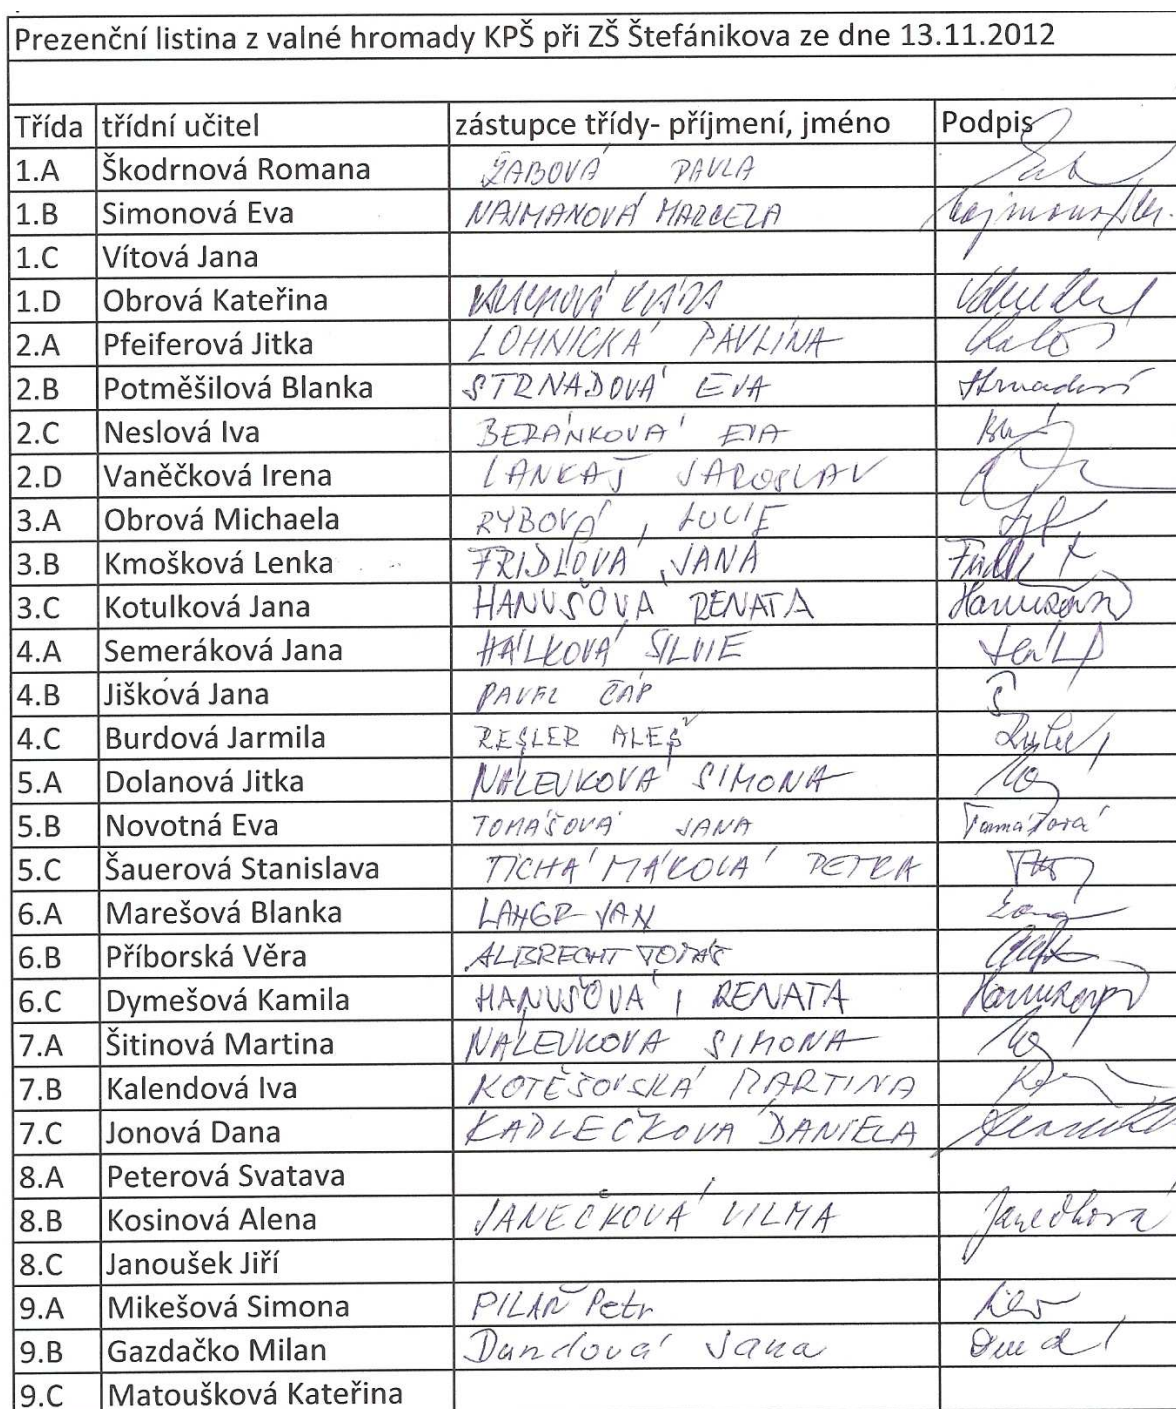 Prezenční listina z valné hromady KPŠ při ZŠ Štefánikova ze dne 13.11.2012
Třída třídní učitel zástupce třídy- příjmení, jméno Podpis
1.A Škodrnová Romana ŽABOVÁ PAVLA
1.B Simonová Eva NAJMANOVÁ MARCELA
1.C Vítová Jana
1.D Obrová Kateřina
2.A Pfeiferová Jitka LOHNICKÁ PAVLÍNA
2.B Potměšilová Blanka STRNADOVÁ EVA Strnadová
2.C Neslová Iva BERÁNKOVÁ EVA
2.D Vaněčková Irena LANKAŠ JAROSLAV
3.A Obrová Michaela RYBOVÁ, LUCIE
3.B Kmošková Lenka FRIDLOVÁ JANA
3.C Kotulková Jana HANUŠOVÁ RENATA Hanušová
4.A Semeráková Jana HÁLKOVÁ SILVIE
4.B Jišková Jana PAVEL ČÁP
4.C Burdová Jarmila REŠLER ALEŠ
5.A Dolanová Jitka NALEVKOVÁ SIMONA
5.B Novotná Eva TOMÁŠOVÁ JANA Tomášová
5.C Šauerová Stanislava TICHÁ MÁKOVÁ PETRA
6.A Marešová Blanka LANGR JAN
6.B Příborská Věra ALBRECHT TOMÁŠ
6.C Dymešová Kamila HANUŠOVÁ, RENATA Hanušová
7.A Šitinová Martina NALEVKOVÁ SIMONA
7.B Kalendová Iva KOTĚŠOVSKÁ MARTINA
7.C Jonová Dana KADLEČKOVÁ DANIELA
8.A Peterová Svatava
8.B Kosinová Alena JANEČKOVÁ VILMA Janečková
8.C Janoušek Jiří
9.A Mikešová Simona PILAŘ Petr
9.B Gazdačko Milan Dundová Jana
9.C Matoušková Kateřina